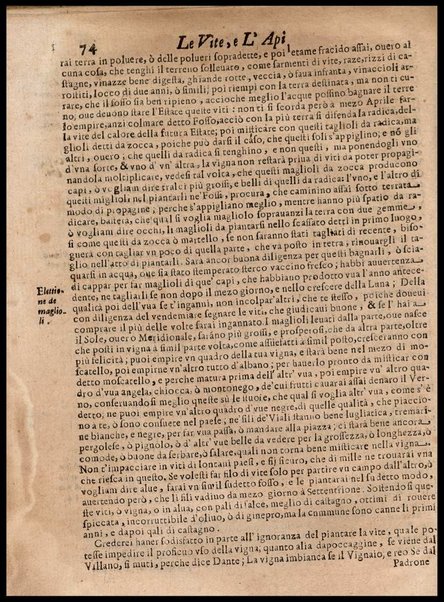 74
Le Vite, e L' Api
rai terra in poluere, ò delle polueri sopradette, e poi letame fracido assai, ouero al
cuna cosa, che tenghi il terreno solleuato, come sarmenti di vite, raze, rizzi di ca-
stagne, vinazze bene digesta, ghiande rotte, veccia, ò faua infranta, vinaccioli ar-
rostiti, locco di due anni, ò simili; poi riempi con la terra destinata, ma non ti cu-
rare, che il fosso sia ben ripieno, accioche meglio l'acque possino bagnare il terre
no; oue deuono stare l'Estate queste viti: non ti si scorda però à mezo Aprile far-
lo empire, anzi colmare detto Fosso, acciò con la più terra si difenda la radica, del-
la vite del calore della futura Estate; poi misticare con questi taglioli da radica, ma
glioli detti da zocca, poiche può darsi il caso, che questi soli s'appiglino; e nò gli
altri, ouero; che quelli da radica si tenghino, e non questi, ma ponendogli vno
d'vna sorte, & vno d' vn' altra, la vigna non restarà priua di viti da poter propagi-
nandola moltiplicare, vedesi tal volta, che questi maglioli da zocca producono
capi, ò vogliam dire tralci più grossi, e belli di quelli da radica l'vno, e l'altro di
questi maglioli nel piantarli ne' Fossi, procura, che caminino assai sotto terra
modo di propagine; perche s'appigliano meglio, mentre hanno più spatio da ra-
dicare, basterà, che qual si voglia magliolo soprauanzi la terra con due gemme,
ò vogliam dire occhi. Il maglioli da piantarsi nello scassato detti in primo luogo,
si come questi da zocca ò martello, se non saranno stati tagliati di recente, biso-
gnarà con tagliar vn poco di quella parte, che và posto in terra, rinouargli il ta-
glio nell'atto di piantarli. Sarà ancor buona diligenza per questi bagnarli, ò sciac-
quarsi in acqua, oue sia stato stemperato sterco vaccino fresco; habbi auuertenza
di cappar per far maglioli di que' capi, che habbiano prodotto vua l'anno antece-
dente, ne tagliarli se non dopo il mezo giorno, e nello crescere della Luna; Della
qualità poi dell'vua se t'inganni, non incolpar altri, che te stesso, poiche doueui
con diligenza del vendemia e segnare le viti, che giudicasti buone, & se l'hai à
comprare il più delle volte sarai ingannato I maglioli leuati dalla parte, oue nasce
il Sole, ouer o Meridionale, sarāno più grossi, e prosperosi, che da altra parte, oltre
che posti in vigna à simil parte volta, come assuefatti à simil posto, cresceranno con
più felicità; puoi empire vn quadro della tua vigna, e starà bene nel mezo di mo-
scatello, poi empirne vn'altro tutto d'albano; per hauerlo pronto da misticar con
detto moscatello, e perche matura prima dell' altr' vua, poi empire vn' altro qua-
dro d'vua angela, chiocca, ò montonego, de'cui frutti cauarai assai denaro il Ver-
no, conseruandosi meglio queste sù le stuoie, che qual si voglia altr' vua, come s'è
detto; ne puoi empire vn'altro quadro d'vue negre, di quelle qualità, che piaccio-
no à te, ò sono consuete nel paese; ne' sili de'Viali stanno bene lugliatica, tremari-
ne bianche, e negre, per far vua passà, ò mandare alla piazza; ci starà bene ancora
pergolese, ò pignolo, ò d' altr' vue belle da vedere per la grossezza, ò longhezza, ò
comode, ò buone da serbare, ò salare, quali non torna bene misticare nella vigna
Non t'impacciare in viti di lontani paesi, e sij sicuro, che di mille ne trouarai vna
che riesca in questo. Se volesti far filo di vite solo per partire vn campo dall'altro, ò
vogliam dire alue, farai vn simil sudetto fosso, e le piantarai nel sudetto modo,
auertendo però, che li sili vadino da mezo giorno à Settentrione. Solendo si que-
ste viti, ò vigna, o in alua, con pali di alce, meglio di castagno, ottimi di rouere
spiccata, incorruttibile d'oliuo, ò di ginepro, ma la cummune sono canne li primi
anni, e dapoi pali di castagno.
Crederei hauer sodisfatto in parte all'ignoranza del piantare la vite, quale po-
tesse impedire il proficuo vso della vigna, quanto alla dapoccaggine, se viene dal
Villano, si muti, perche dice Dante; La vigna imbianca se il Vignaio, e reo Se dal
Padrone
Elettio
ne de
maglio-
li.